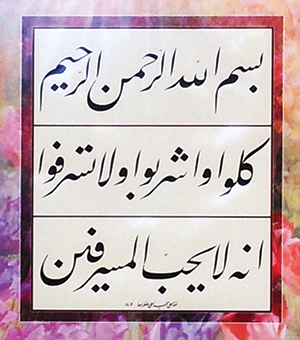 بسم الله الرحمن الرحیم
کلوا و اشربوا و لا تسرفوا
انه لا یحب المسرفین